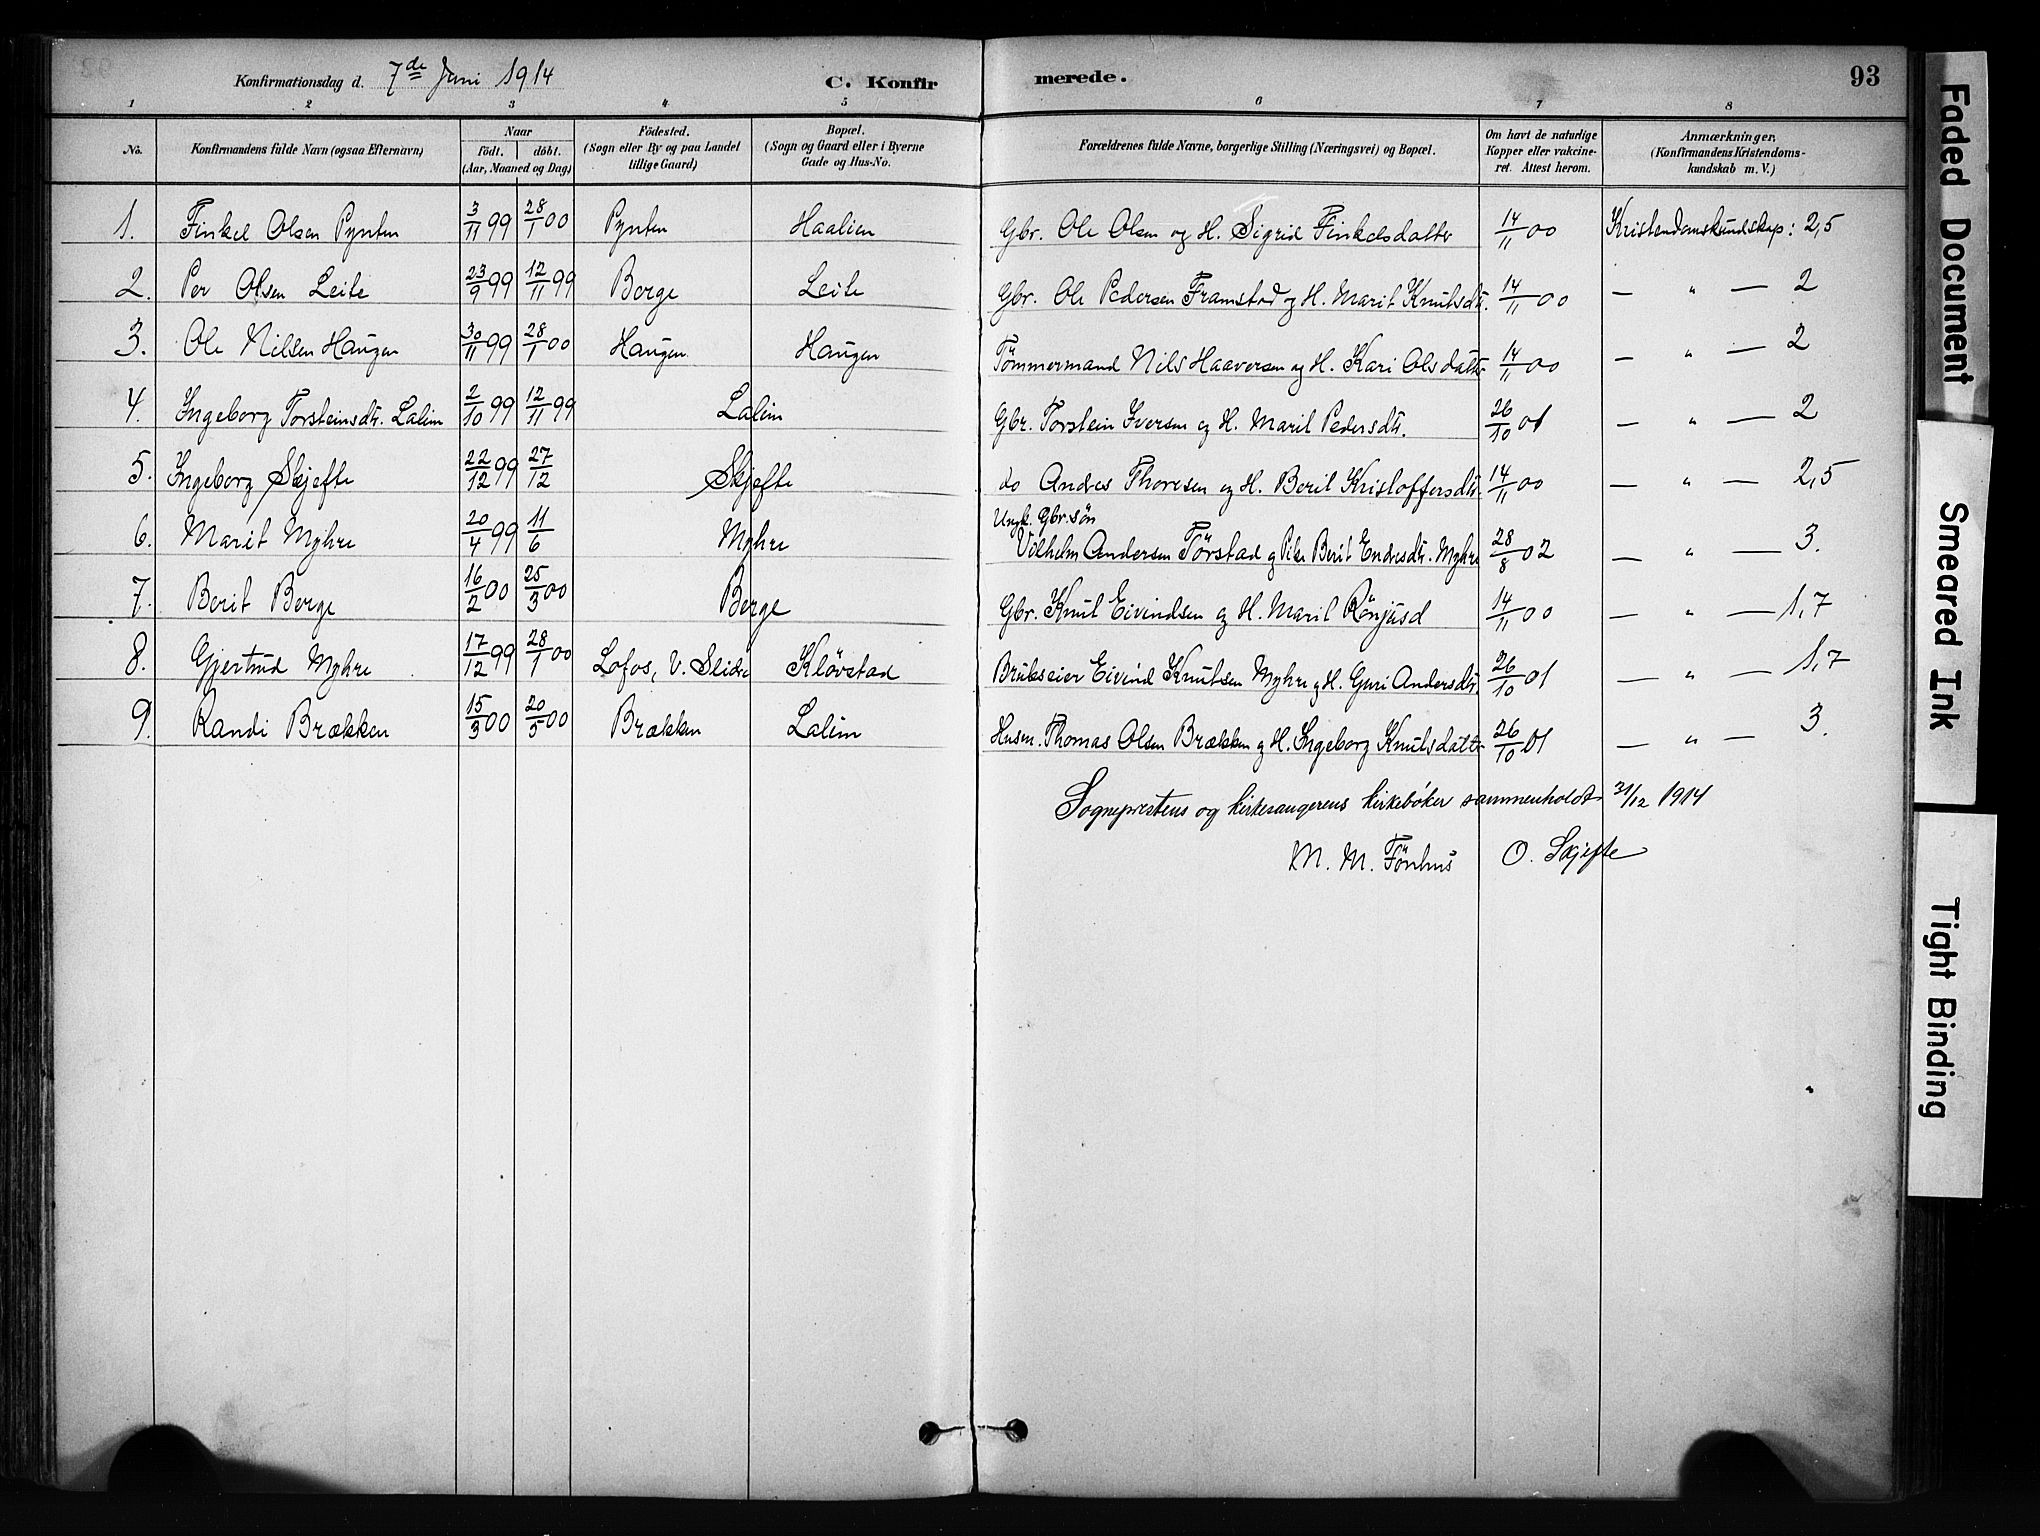 Konfirmationsdag d. 7de Juni 1914 C. Konfirmerede. 93
1 2 3 4 5 6 7 8
No. Konfirmandens fulde Navn (ogsaa Efternavn) Naar födt. döbt. (Aar, Maaned og Dag) Födested. (Sogn eller By og paa Landet tillige Gaard) Bopæl. (Sogn og Gaard eller i Byerne Gade og Hus-No. Forældrenes fulde Navne, borgerlige Stilling (Næringsvei) og Bopæl. Om havt de naturlige Kopper eller vakcineret. Attest herom. Anmærkninger, (Konfirmandens Kristendomskundskab m. V.)
1. Finkel Olsen Pynten 3/11 99 28/1 00 Pynten Haalien Gbr. Ole Olsen og H. Sigrid Finkelsdatter 14/11 00 Kristendomskundskap: 2,5
2. Per Olsen Leite 23/9 99 12/11 99 Berge Leite Gbr. Ole Pedersen Framstad og H. Marit Knutsdtr. 14/11 00 — " — 2
3. Ole Nilsen Haugen 30/11 99 28/1 00 Haugen Haugen Tömmermand Nils Haaversen og H. Kari Olsdatter 14/11 00 — " — 2
4. Ingeborg Torsteinsdtr. Lalim 2/10 99 12/11 99 Lalim Gbr. Torstein Iversen og H. Marit Pedersdtr. 26/10 01 — " — 2
5. Ingeborg Skjefte 22/12 99 27/12 Skjefte do Andres Thoresen og H. Berit Kristoffersdtr. 14/11 00 — " — 2,5
6. Marit Myhre 20/4 99 11/6 Myhre Ungk. Gbr.sön
Vilhelm Andersen Törstad og Pike Berit Endresdtr. Myhre 28/8 02 — " — 3.
7. Berit Berge 16/2 00 25/3 00 Berge Gbr. Knut Eivindsen og H. Marit Rönjusd 14/11 00 — " — 1,7
8. Gjertrud Myhre 17/12 99 28/1 00 Lofos, V. Slidre Klövstad Brukseier Eivind Knutsen Myhre og H. Guri Andersdtr. 26/10 01 — " — 1,7
9. Randi Brækken 15/3 00 20/5 00 Brækken Lalim Husm. Thomas Olsen Brækken og H. Ingeborg Knutsdatter 26/10 01 — " — 3.
Sogneprestens og kirkesangerens kirkebøker sammenholdt 31/12 1914
M. M. Fönhus O. Skjefte
Faded Document
Smeared Ink
Tight Binding